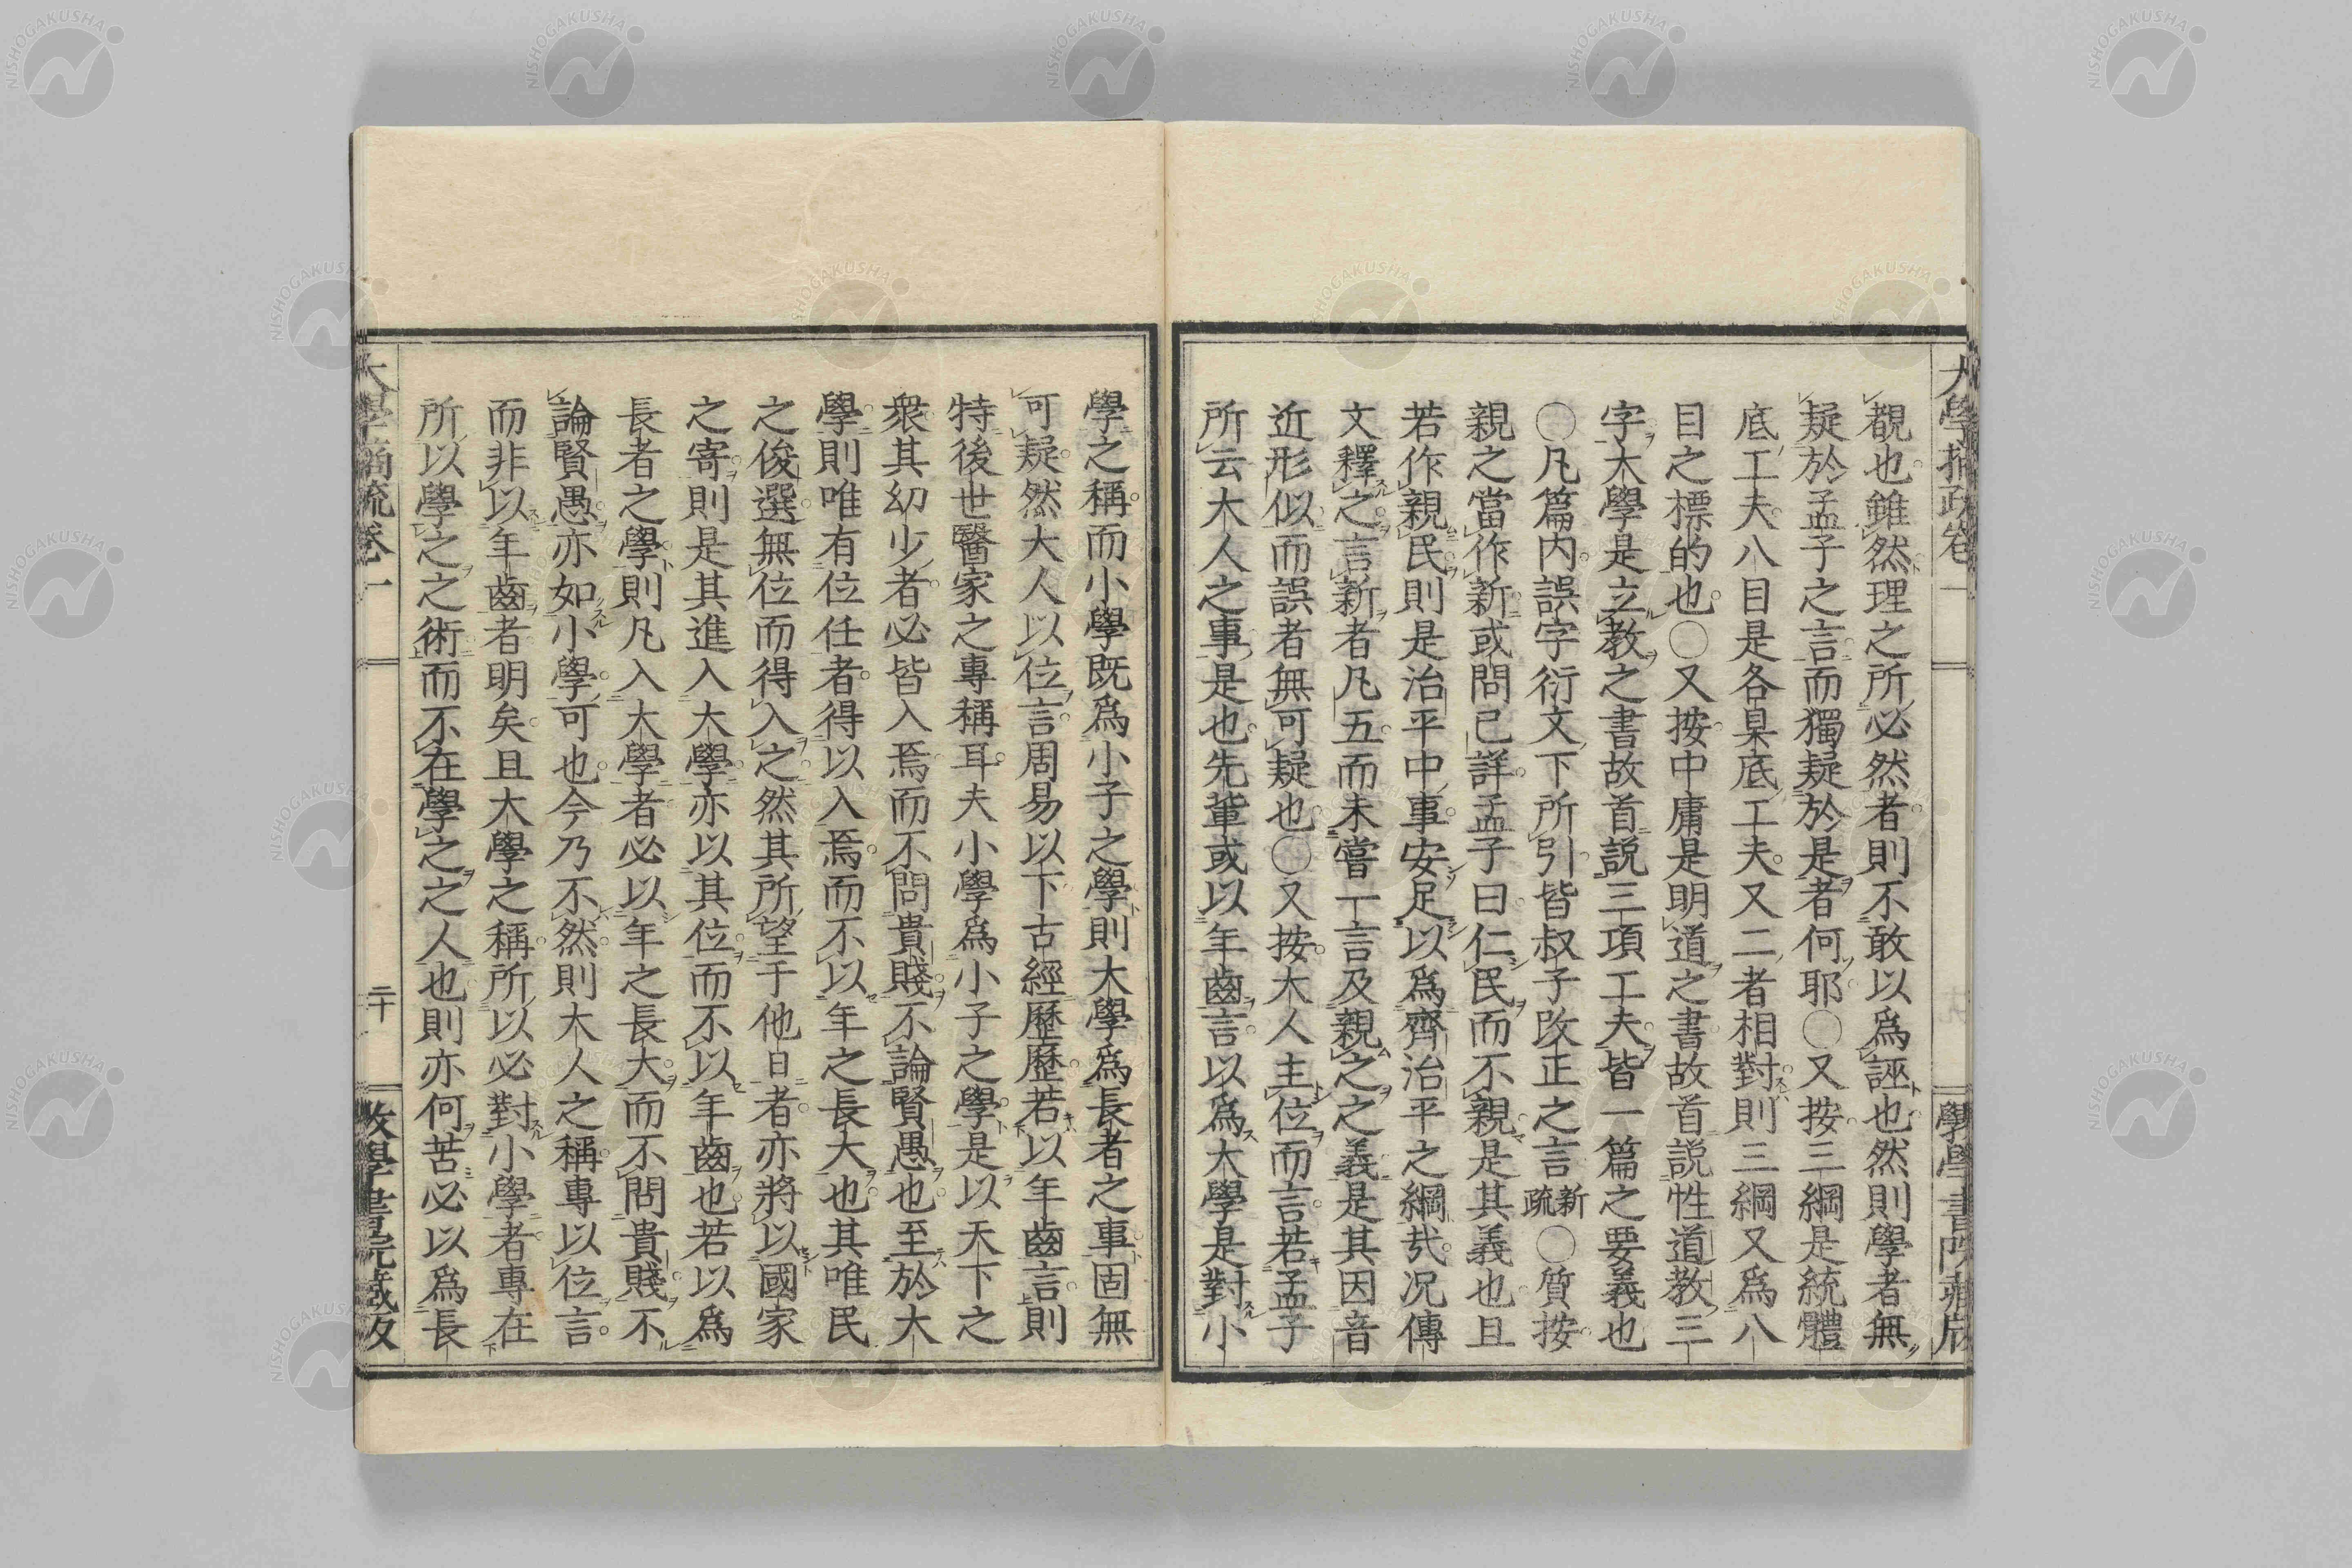 覩也雖然理之所必然者則不敢以爲誣也然則學者無
疑於孟子之言而獨疑於是者何耶○又按三綱是統體
底工夫八目是各具底工夫又二者相對則三綱又爲八
目之標的也○又按中庸是明道之書故首説性道教三
字大學是立教之書故首説三項工夫皆一篇之要義也
○凡篇内誤字衍文下所引皆叔子改正之言新疏○質按
親之當作新或問已詳孟子曰仁民而不親是其義也且
若作親民則是治平中事安足以爲齊治平之綱㢤况傳
文釋之言新者凡五而未嘗一言及親之之義是其因音
近形似而誤者無可疑也○又按大人主位而言若孟子
所云大人之事是也先輩或以年齒言以爲大學是對小
學之稱而小學既爲小子之學則大學爲長者之事固無
可疑然大人以位言周易以下古經歷歷若以年齒言則
特後世醫家之專稱耳夫小學爲小子之學是以天下之
衆其幼少者必皆入焉而不問貴賤不論賢愚也至於大
學則唯有位任者得以入焉而不以年之長大也其唯民
之俊選無位而得入之然其所望于他日者亦將以國家
之寄則是其進入大學亦以其位而不以年齒也若以爲
長者之學則凡入大學者必以年之長大而不問貴賤不
論賢愚亦如小學可也今乃不然則大人之稱專以位言
而非以年齒者明矣且大學之稱所以必對小學者專在
所以學之之術而不在學之之人也則亦何苦必以爲長
大學摘疏卷一
二十